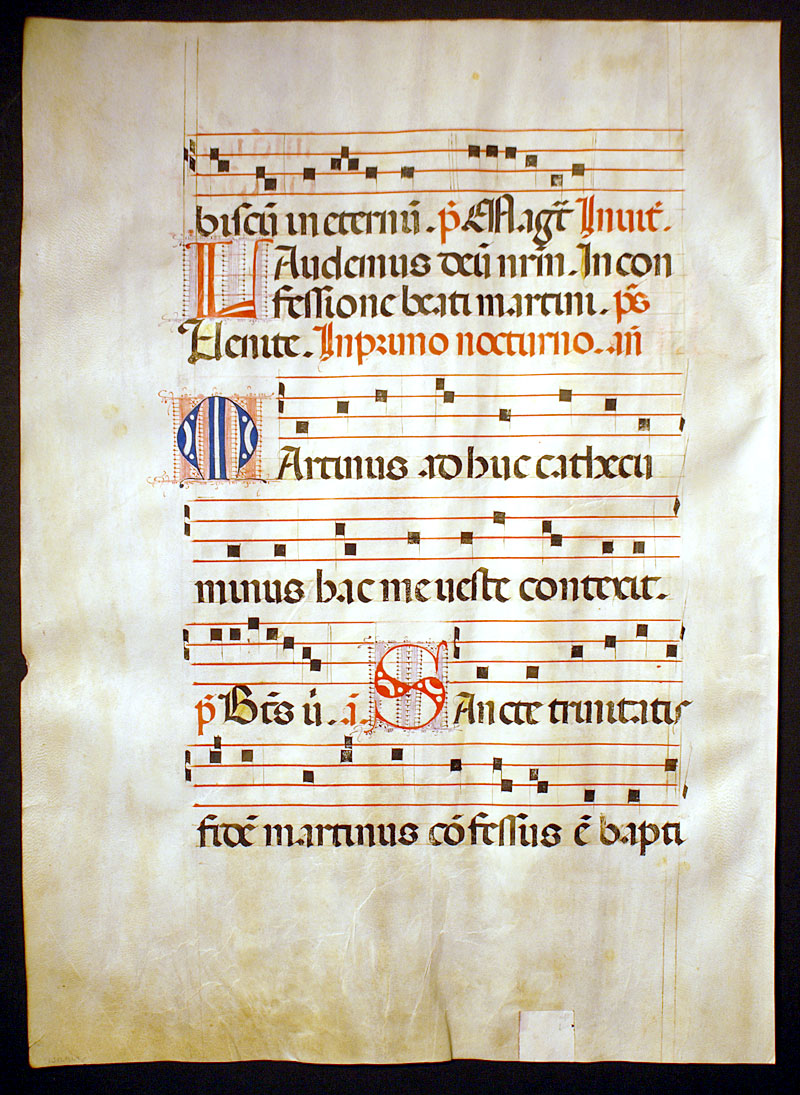 biscū in eternū. p̄s Magt̄ Inuit̄.
LAudemus deū nr̄m. In con
fessione beati martini. p̄s
Uenite. In primo nocturno. an̄
MArtinus ad huc cathecu
minus hac me ueste contexit.
p̄ Bt̄s ū. a. SAncte trinitatis
fidē martinus cōfessus ē bapti